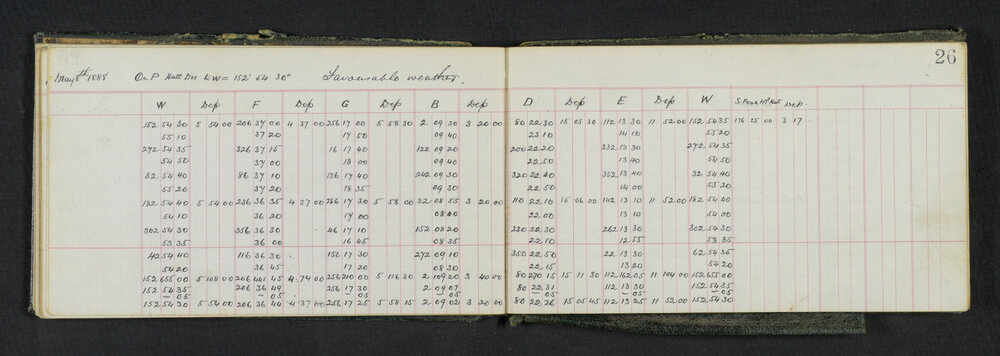 26
May 8th 1888 On P Hutt Dis LW = 152° 54' 30" Favourable weather.
W Dep F Dep G Dep B Dep D Dep E Dep W Dep.
152 54 30 5 54 00 206 37 00 4 37 00 256 17 00 5 58 30 2 09 30 3 20 00 80 22 30 15 05 30 112 13 30 11 52 00 152 54 35 176 25 00 3 17
55 10 37 20 17 50 09 40 23 10 14 10 55 20
272 54 35 326 37 15 16 17 40 122 09 20 200 22 20 232 13 30 272 54 35
54 50 37 00 18 00 09 40 22 50 13 40 54 50
32 54 40 86 37 10 136 17 40 242 09 30 320 22 40 352 13 40 32 54 40
55 20 37 20 18 35 09 30 22 50 14 00 55 20
182 54 40 5 54 00 236 36 35 4 37 00 286 17 30 5 58 00 32 08 55 3 20 00 110 22 10 15 06 00 142 13 10 11 52 00 182 54 40
54 10 36 20 17 00 08 40 22 00 13 10 54 00
302 54 30 356 36 30 46 17 10 152 08 20 230 22 30 262 13 30 302 54 30
53 35 36 00 16 45 08 35 22 10 12 55 53 35
62 54 40 116 36 30 156 17 30 272 09 10 350 22 50 22 13 30 62 54 35
54 20 36 45 17 20 08 30 22 15 13 20 54 20
152 655 00 5 108 00 206 441 45 4 74 00 256 210 00 5 116 30 2 109 20 3 40 00 80 270 15 15 11 30 112 162 05 11 104 00 152 655 00
152 54 35 206 36 49 256 17 30 2 09 07 80 22 31 112 13 30 152 54 35
— 05 — 05 — 05 — 05 — 05 — 05 — 05
152 54 30 5 54 00 206 36 44 4 37 00 256 17 25 5 58 15 2 09 02 3 20 00 80 22 26 15 05 45 112 13 25 11 52 00 152 54 30